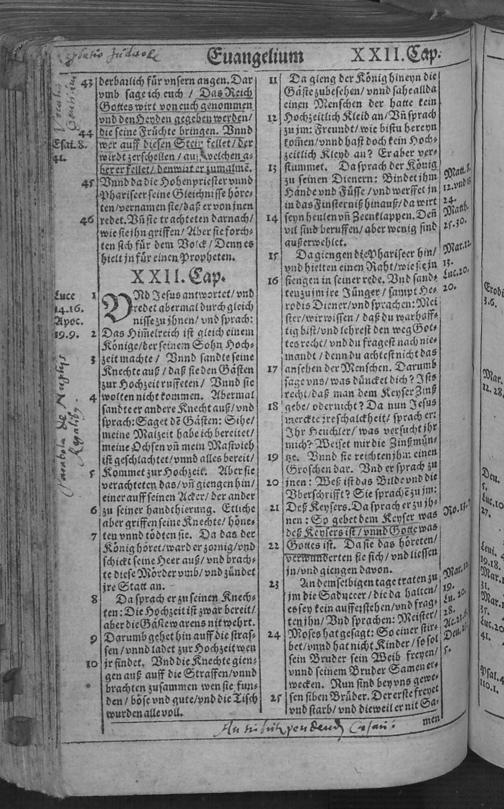 Euangelium XXII. Cap.
43 derbarlich für vnsern augen. Dar
vmb sage ich euch / Das Reich
Gottes wirt von euch genommen
vnd den Heyden gegeben werden /
die seine Früchte bringen. Vnnd
44 wer auff diesen Stein fellet / der
Esai. 8.
wirdt zerschellen / auff welchen a-
41.
ber er fellet / den wirt er zumalmē.
45 Vnnd da die Hohenpriester vnnd
Phariseer seine Gleichnisse höre-
ten / vernamen sie / daß er von jnen
46 redet. Vn̄ sie trachteten darnach /
wie sie jhn griffen / Aber sie forch-
ten sich für dem Volck / Denn es
hielt jn für einen Propheten.
XXII. Cap.
Luce 14.16.
Apoc. 19.9.
1 VNd Jesus antwortet / vnd
redet abermal durch gleich
nisse zu jhnen / vnd sprach:
2 Das Him̄elreich ist gleich einem
Könige / der seinem Sohn Hoch-
3 zeit machte / Vnnd sandte seine
Knechte auß / daß sie den Gästen
zur Hochzeit rufften / Vnnd sie
4 wolten nicht kommen. Abermal
sandte er andere Knecht auß / vnd
sprach: Saget dē Gästen: Sihe /
meine Malzeit habe ich bereitet /
meine Ochsen vn̄ mein Mastvieh
ist geschlachtet / vnnd alles bereit /
5 Kommet zur Hochzeit. Aber sie
verachteten das / vn̄ giengen hin /
einer auff seinen Acker / der ander
6 zu seiner handthierung. Etliche
aber griffen seine Knechte / höne-
7 ten vnnd tödten sie. Da das der
König höret / ward er zornig / vnd
schickt seine Heer auß / vnd brach-
te diese Mörder vmb / vnd zündet
jre Statt an.
8 Da sprach er zu seinen Knech-
ten: Die Hochzeit ist zwar bereit /
aber die Gäste warens nit wehrt.
9 Darumb gehet hin auff die stras-
sen / vnnd ladet zur Hochzeit wen
10 jr findet. Vnd die Knechte gien-
gen auß auff die Straffen / vnnd
brachten zusammen wen sie fun-
den / böse vnd gute / vnd die Tisch
wurden alle voll.
11 Da gieng der König hineyn die
Gäste zubesehen / vnnd sahe allda
einen Menschen der hatte kein
12 Hochzeitlich Kleid an / Vn̄ sprach
zu jm: Freundt / wie bistu hereyn
kom̄en / vnnd hast doch kein Hoch-
zeitlich Kleyd an? Er aber ver-
13 stummet. Da sprach der König
zu seinen Dienern: Bindet jhm
Hände vnd Füsse / vnd werffet jn
in das Finsterniß hinauß / da wirt
14 seyn heulen vn̄ Zeenklappen. Den̄
vil sind beruffen / aber wenig sind
außerwehlet.
15 Da giengen die Phariseer hin /
vnd hielten einen Raht / wie sie jn
16 fiengen in seiner rede. Vnd sand-
ten zu jm jre Jünger / sampt He-
rodis Diener / vnd sprachen: Mei-
ster / wir wissen / daß du warhaff-
tig bist / vnd lehrest den weg Got-
tes recht / vnd du fragest nach nie-
mandt / denn du achtest nicht das
17 ansehen der Menschen. Darumb
sage vns / was düncket dich? Ists
recht / daß man dem Keyser Zinß
18 gebe / oder nicht? Da nun Jesus
merckte jre schalckheit / sprach er:
Ihr Heuchler / was versucht jhr
mich? Weiset mir die Zinßmün-
19 tze. Vnnd sie reichten jhm einen
20 Groschen dar. Vnd er sprach zu
jnen: Weß ist das Bilde vnd die
Vberschrifft? Sie sprachē zu jm:
21 Deß Keysers. Da sprach er zu jh-
nen: So gebet dem Keyser was
deß Keysers ist / vnnd Gott was
22 Gottes ist. Da sie das höreten /
verwunderten sie sich / vnd liessen
jn / vnd giengen davon.
23 An demselbigen tage traten zu
jm die Saduceer / die da halten /
es sey kein aufferstehen / vnd frag-
ten jhn / Vnd sprachen: Meister /
24 Moses hat gesagt: So einer stir-
bet / vnnd hat nicht Kinder / so sol
sein Bruder sein Weib freyen /
vnnd seinem Bruder Samen er-
wecken. Nun sind bey vns gewe-
25 sen siben Brüder. Der erste freyet
vnd starb / vnd dieweil er nit Sa-
men
Matt. 8.
12. vnd
24.
Matth.
25.30.
Mar. 12.
13.
Luc. 20.
20.
Ro. 13.7.
Mar. 12.
19.
Lu. 20.
28.
Ac. 23.
Deu. 25.
5.